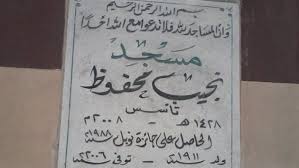 بسم الله الرحمن الرحيم
وأن المساجد لله فلا تدعوا مع الله أحدًا
مسجد
نجيب محفوظ
تأسس
١٤٢٨ هـ - ٢٠٠٨ م
الحاصل على جائزة نوبل سنة ١٩٨٨
ولد ١٩١١ توفى ٢٠٠٦